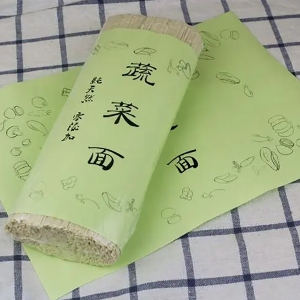 蔬菜面
純天然 零添加
面